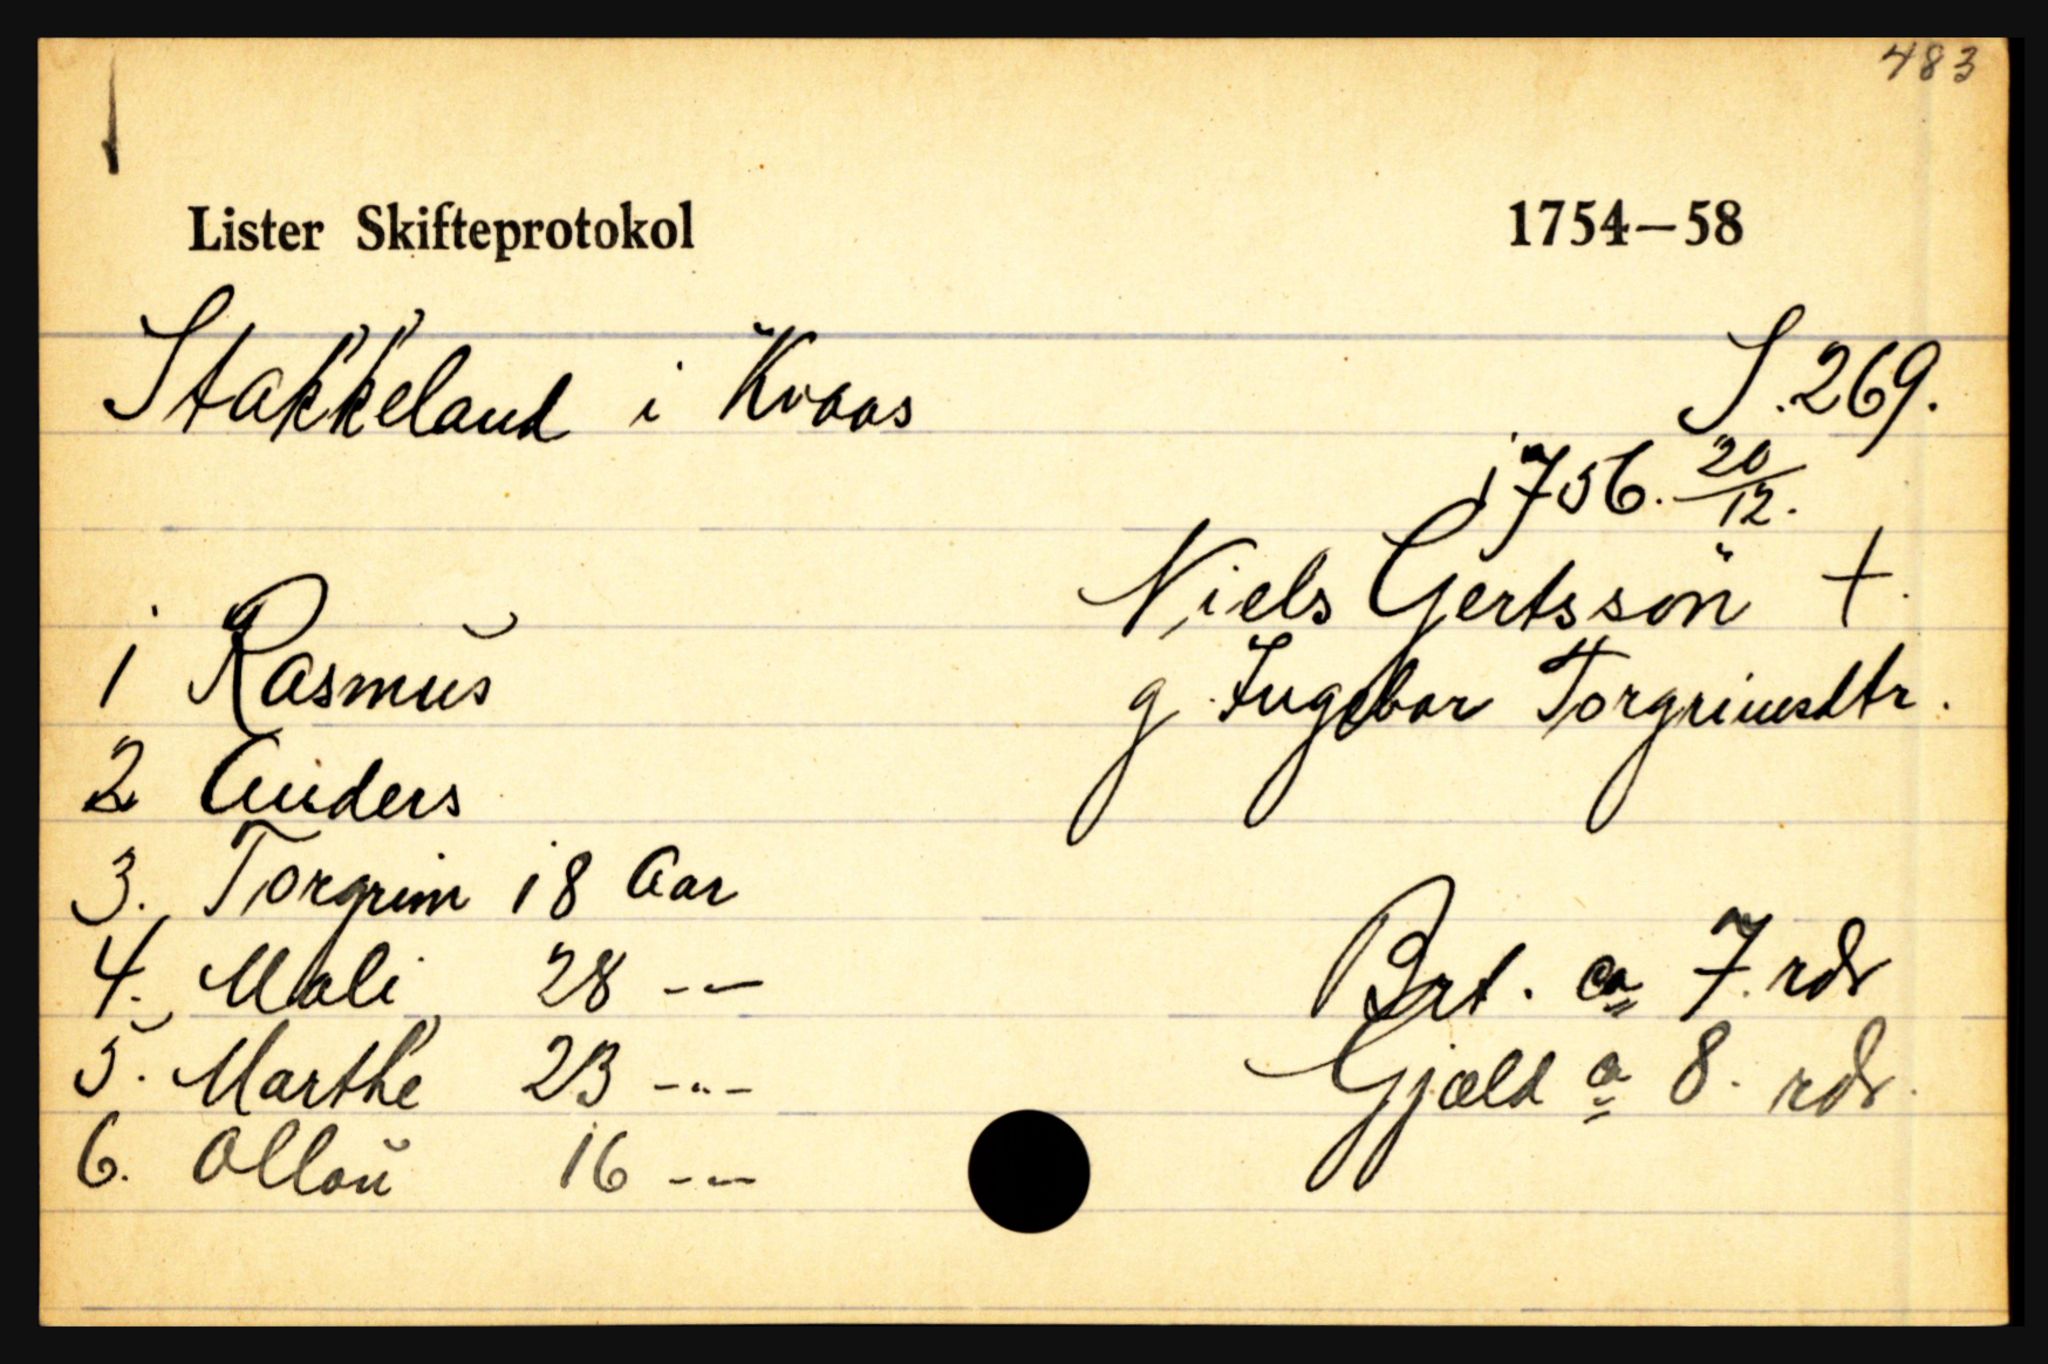 483
Lister Skifteprotokol 1754–58
Stakkeland i Kvaas S. 269.
1756. 20/12.
Niels Gertssön +.
1 Rasmus
g. Ingebor Torgrimsdtr.
2 Anders
3. Torgrim 18 Aar
4. Mali 28 -"-
Brt. ca 7. rdr
5. Marthe 23 -"-
Gjæld a 8. rdr.
6. Ollou 16 -"-